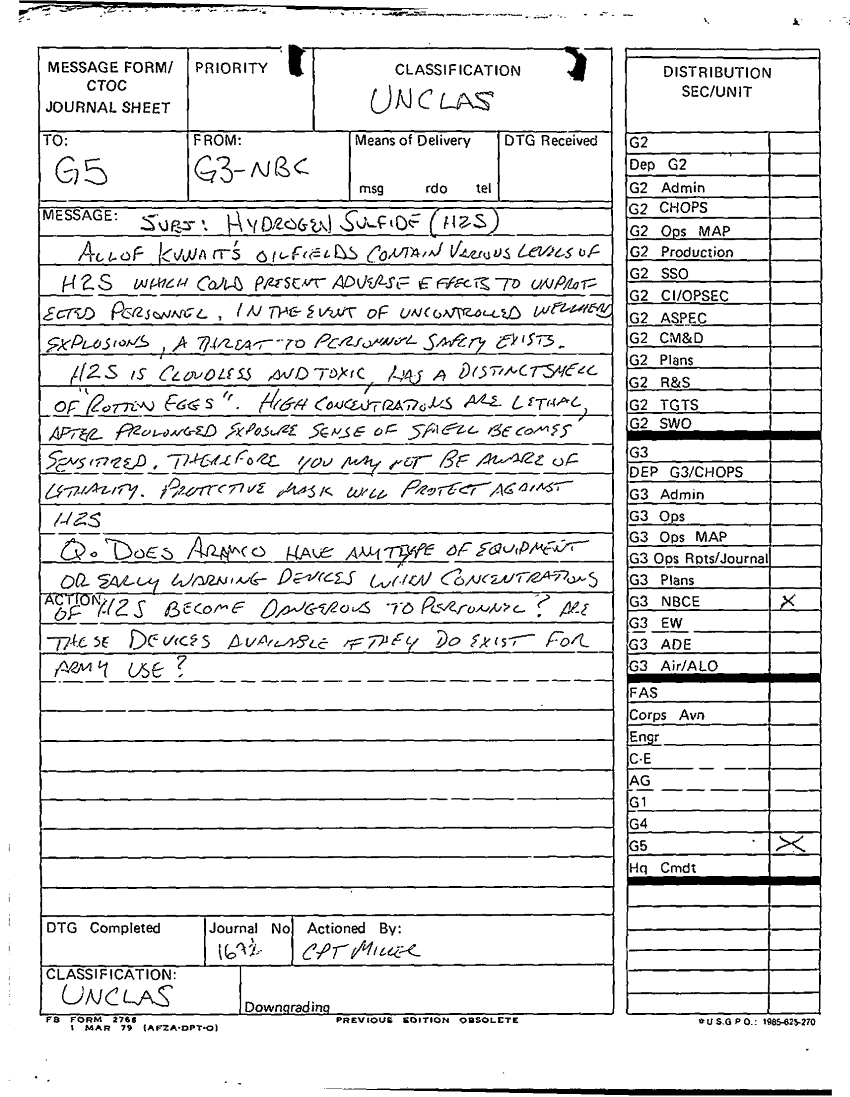 MESSAGE FORM/
CTOC
JOURNAL SHEET
PRIORITY
CLASSIFICATION
UNCLAS
TO:
G5
FROM:
G3-NBC
Means of Delivery
msg rdo tel
DTG Received
MESSAGE: SUBJ: HYDROGEN SULFIDE (H2S)
ALL OF KUWAIT'S OILFIELDS CONTAIN VARIOUS LEVELS OF
H2S WHICH COULD PRESENT ADVERSE EFFECTS TO UNPROT-
ECTED PERSONNEL, IN THE EVENT OF UNCONTROLLED WELLHEAD
EXPLOSIONS, A THREAT TO PERSONNEL SAFETY EXISTS.
H2S IS CLOUDLESS AND TOXIC, HAS A DISTINCT SMELL
OF "ROTTEN EGGS". HIGH CONCENTRATIONS ARE LETHAL,
AFTER PROLONGED EXPOSURE SENSE OF SMELL BECOMES
SENSITIZED. THEREFORE YOU MAY NOT BE AWARE OF
LETHALITY. PROTECTIVE MASK WILL PROTECT AGAINST
H2S
Q. DOES ARAMCO HAVE ANY TYPE OF EQUIPMENT
OR EARLY WARNING DEVICES WHEN CONCENTRATIONS
ACTION:
OF H2S BECOME DANGEROUS TO PERSONNEL? ARE
THESE DEVICES AVAILABLE IF THEY DO EXIST FOR
ARMY USE?
DTG Completed
Journal No
Actioned By:
CPT MILLER
CLASSIFICATION:
UNCLAS
Downgrading
FB FORM 2768
1 MAR 79 (AFZA-DPT-O)
PREVIOUS EDITION OBSOLETE
DISTRIBUTION
SEC/UNIT
G2
Dep G2
G2 Admin
G2 CHOPS
G2 Ops MAP
G2 Production
G2 SSO
G2 CI/OPSEC
G2 ASPEC
G2 CM&D
G2 Plans
G2 R&S
G2 TGTS
G2 SWO
G3
DEP G3/CHOPS
G3 Admin
G3 Ops
G3 Ops MAP
G3 Ops Rpts/Journal
G3 Plans
G3 NBCE X
G3 EW
G3 ADE
G3 Air/ALO
FAS
Corps Avn
Engr
C-E
AG
G1
G4
G5 X
Hq Cmdt
U S.G P O.: 1985-625-270